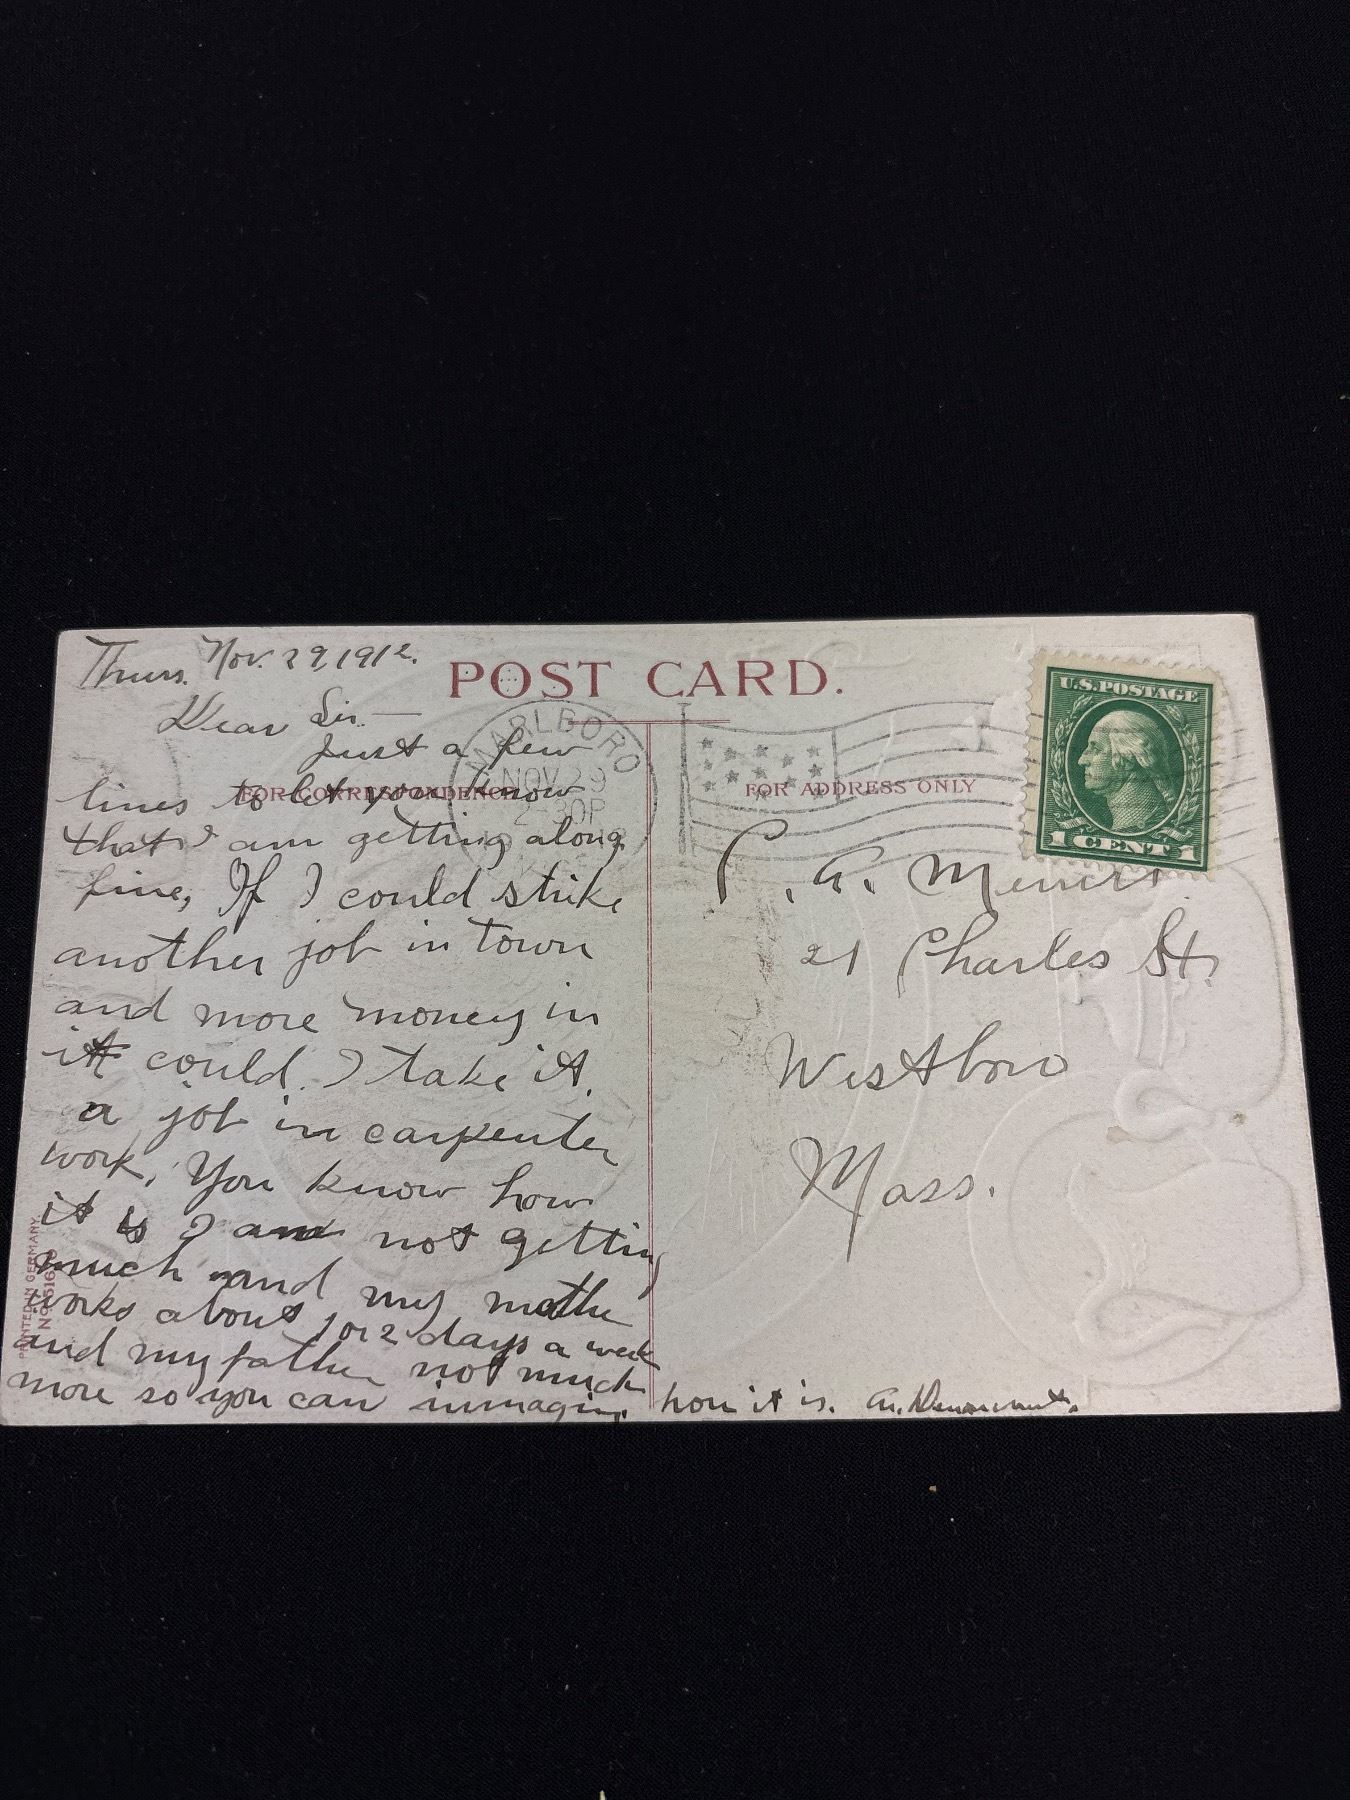 Thurs. Nov. 29, 1912.
POST CARD.
Dear Sir.—
Just a few
FOR CORRESPONDENCE
lines to let you know
that I am getting along
fine, If I could strike
another job in town
and more money in
it could I take it.
a job in carpenter
work. You know how
it is I am not getting
much and my mothe
works about 1 or 2 days a week
and my father not much
more so you can immagin how it is.
MARLBORO
NOV 29
2 30P
FOR ADDRESS ONLY
U.S. POSTAGE
1 CENT 1
C. A.
21 Charles St.
Westboro
Mass.
PRINTED IN GERMANY.